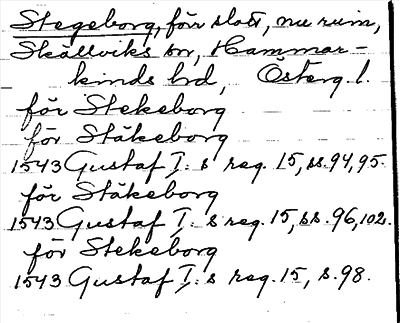 Stegeborg, förr slott, nu ruin,
Skällviks sn, Hammar-
kinds hd, Österg. l.
för Stekeborg
för Stäkeborg
1543 Gustaf I:s reg. 15, ss. 94, 95.
för Stäkeborg
1543 Gustaf I:s reg. 15, ss. 96, 102.
för Stekeborg
1543 Gustaf I:s reg. 15, s. 98.